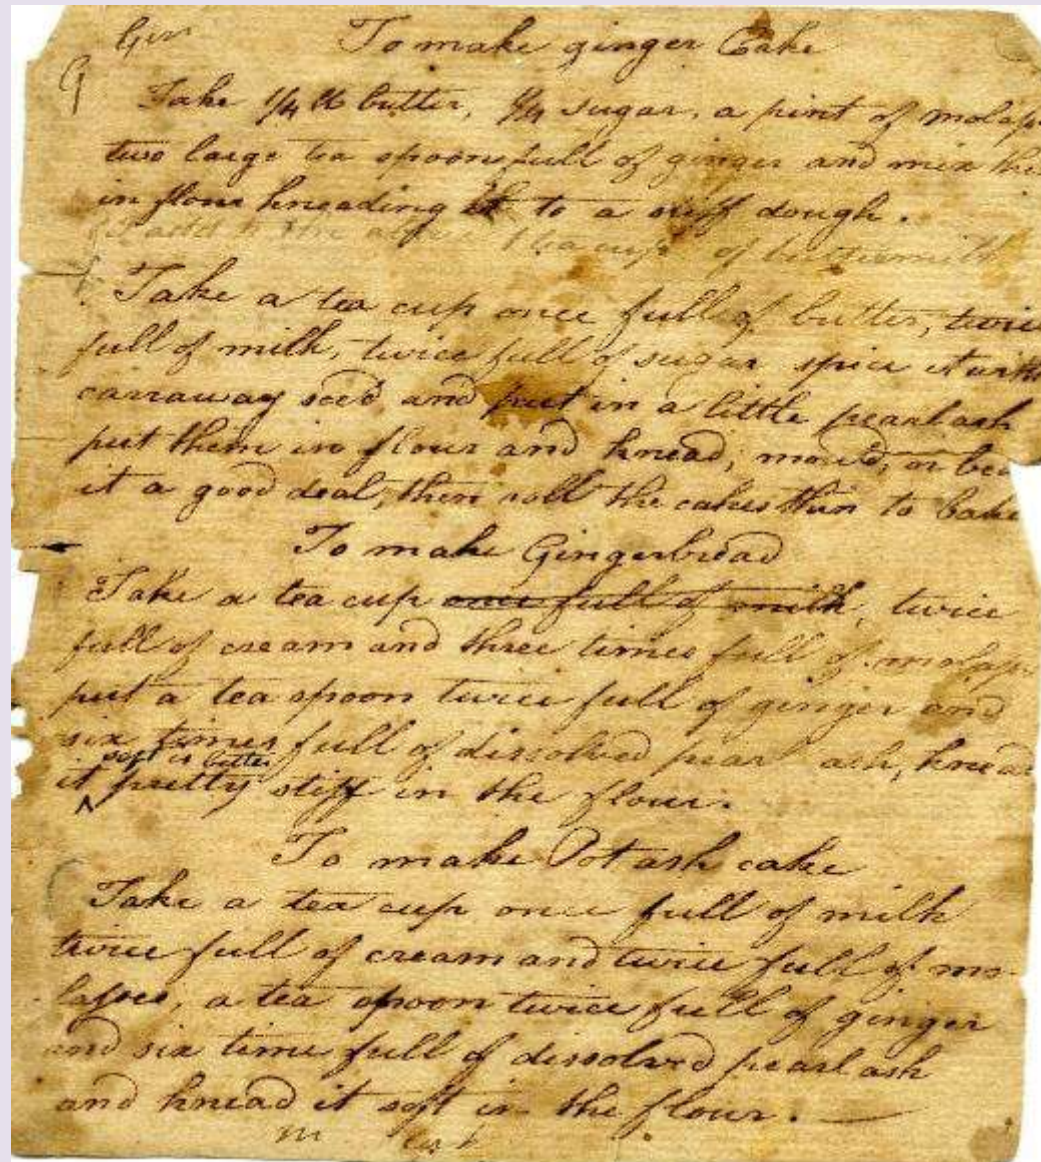 Gin
To make ginger Cake
G
Take 1/4 lb butter, 1/4 sugar, a pint of molass
two large tea spoonsfull of ginger and mix the
in flour kneading it to a stiff dough.
I add to the above 1 tea cup of buttermilk
Take a tea cup once full of butter, twice
full of milk, twice full of sugar spice it with
carraway seed and put in a little pearlash
put them in flour and knead, mould, or bea
it a good deal, then roll the cakes thin to bake
To make Gingerbread
Take a tea cup once full of milk, twice
full of cream and three times full of molass
put a tea spoon twice full of ginger and
six times full of dissolved pearl ash, knead
soft is better
it pretty stiff in the flour.
To make Potash cake
Take a tea cup once full of milk
twice full of cream and twice full of mo-
lasses, a tea spoon twice full of ginger
and six time full of dissolved pearl ash
and knead it soft in the flour.
m